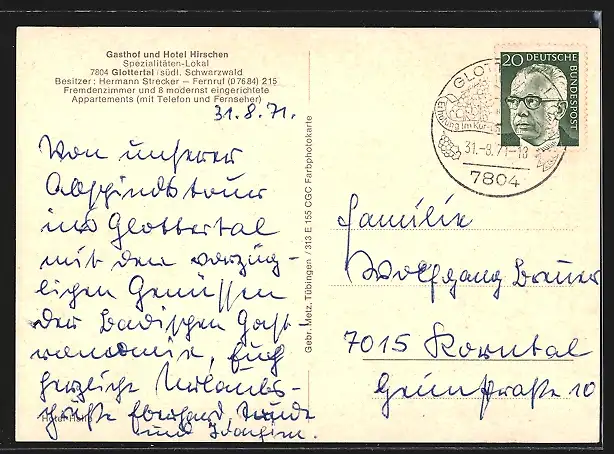 Gasthof und Hotel Hirschen
Spezialitäten-Lokal
7804 Glottertal / südl. Schwarzwald
Besitzer: Hermann Strecker – Fernruf (07684) 215
Fremdenzimmer und 8 modernst eingerichtete
Appartements (mit Telefon und Fernseher)
31.8.71.
Von unserer
Abschiedstour
ins Glottertal
mit den vorzüg-
lichen Genüssen
der badischen Gast
Euch
herzliche Urlaubs-
grüße Eberhard
und Joachim.
Gebr. Metz, Tübingen / 313 E 155 CGC Farbphotokarte
20 DEUTSCHE
BUNDESPOST
31.-8.71-18
7804
Familie
Wolfgang Breuer
7015 Korntal
Grünstraße 10